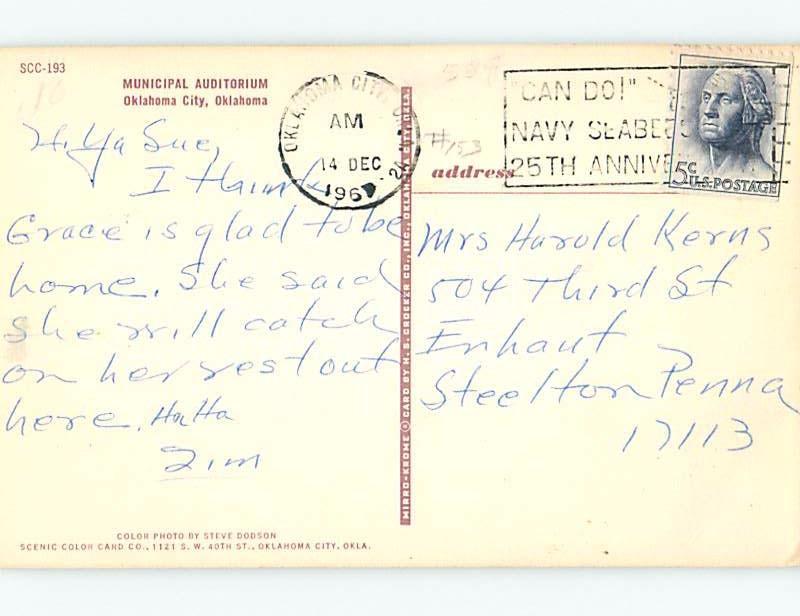 SCC-193
MUNICIPAL AUDITORIUM
Oklahoma City, Oklahoma
Hi Ya Sue,
I Thaink
Grace is glad to be
home. She said
She will catch
on her rest out
here. Ha Ha
Jim
COLOR PHOTO BY STEVE DODSON
SCENIC COLOR CARD CO., 1121 S. W. 40TH ST., OKLAHOMA CITY, OKLA.
MIRRO-KROME ® CARD BY H. S. CROCKER CO., INC.,
OKLAHOMA CITY,
AM
14 DEC
196
"CAN DO!"
NAVY SEABEES
25TH ANNIVE
5c
U.S. POSTAGE
#153
address
Mrs Harold Kerns
504 Third St
Enhaut
Steelton Penna
17113